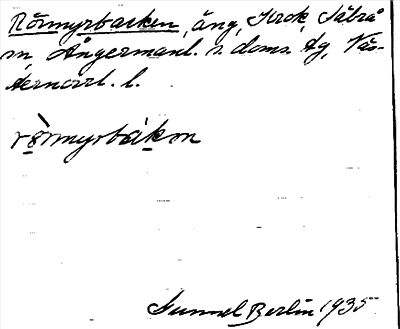 Rörmyrbacken, äng, Krok, Säbrå
sn, Ångermanl. s. doms. tg, Väs-
ternorrl. l.
rö̀rmyrbákɐn
Gunnel Berlin 1935